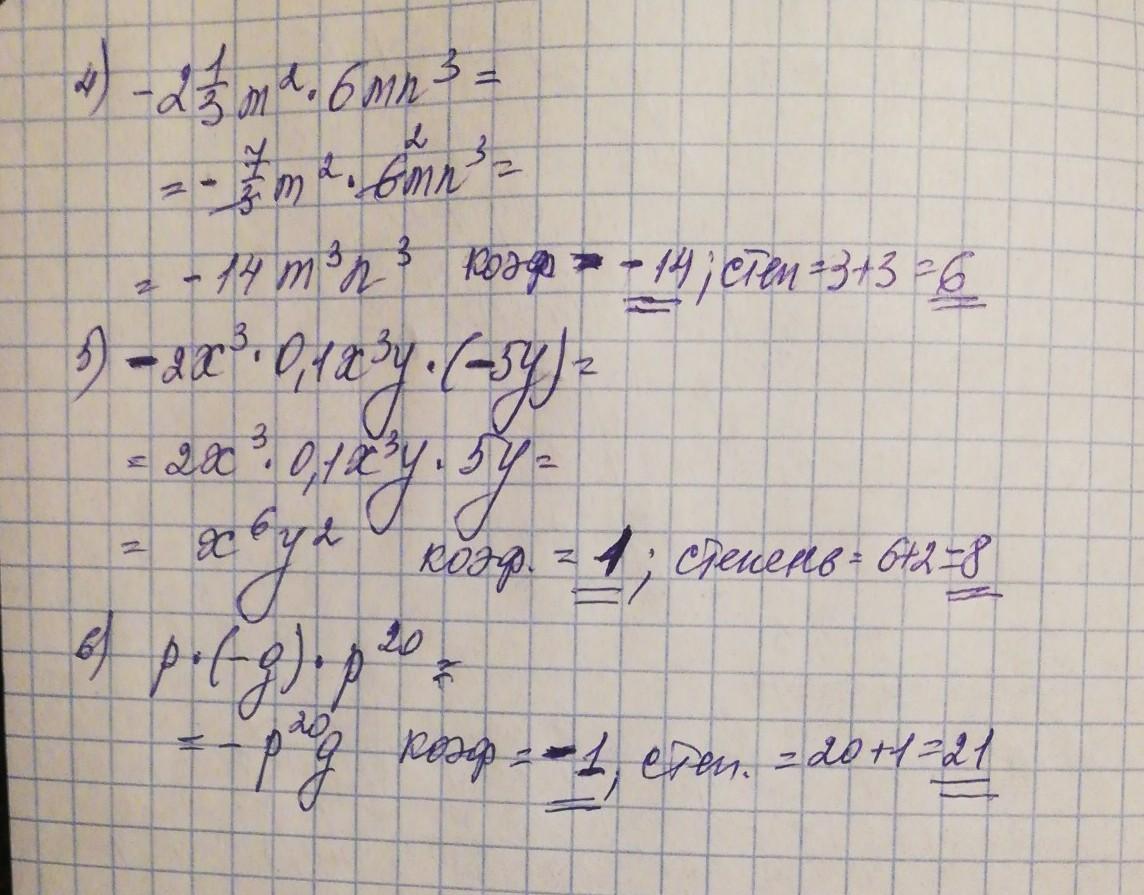 4) -2 1/3 m² · 6mn³ =
= - 7/3 m² · 6 2 mn³ =
= -14 m³n³ коэф = -14; степ = 3+3 = 6
5) -2x³ · 0,1x³y · (-5y) =
= 2x³ · 0,1x³y · 5y =
= x⁶y² коэф. = 1; степень = 6+2=8
6) p · (-g) · p²⁰ =
= - p²⁰g коэф = -1, степ. = 20+1=21